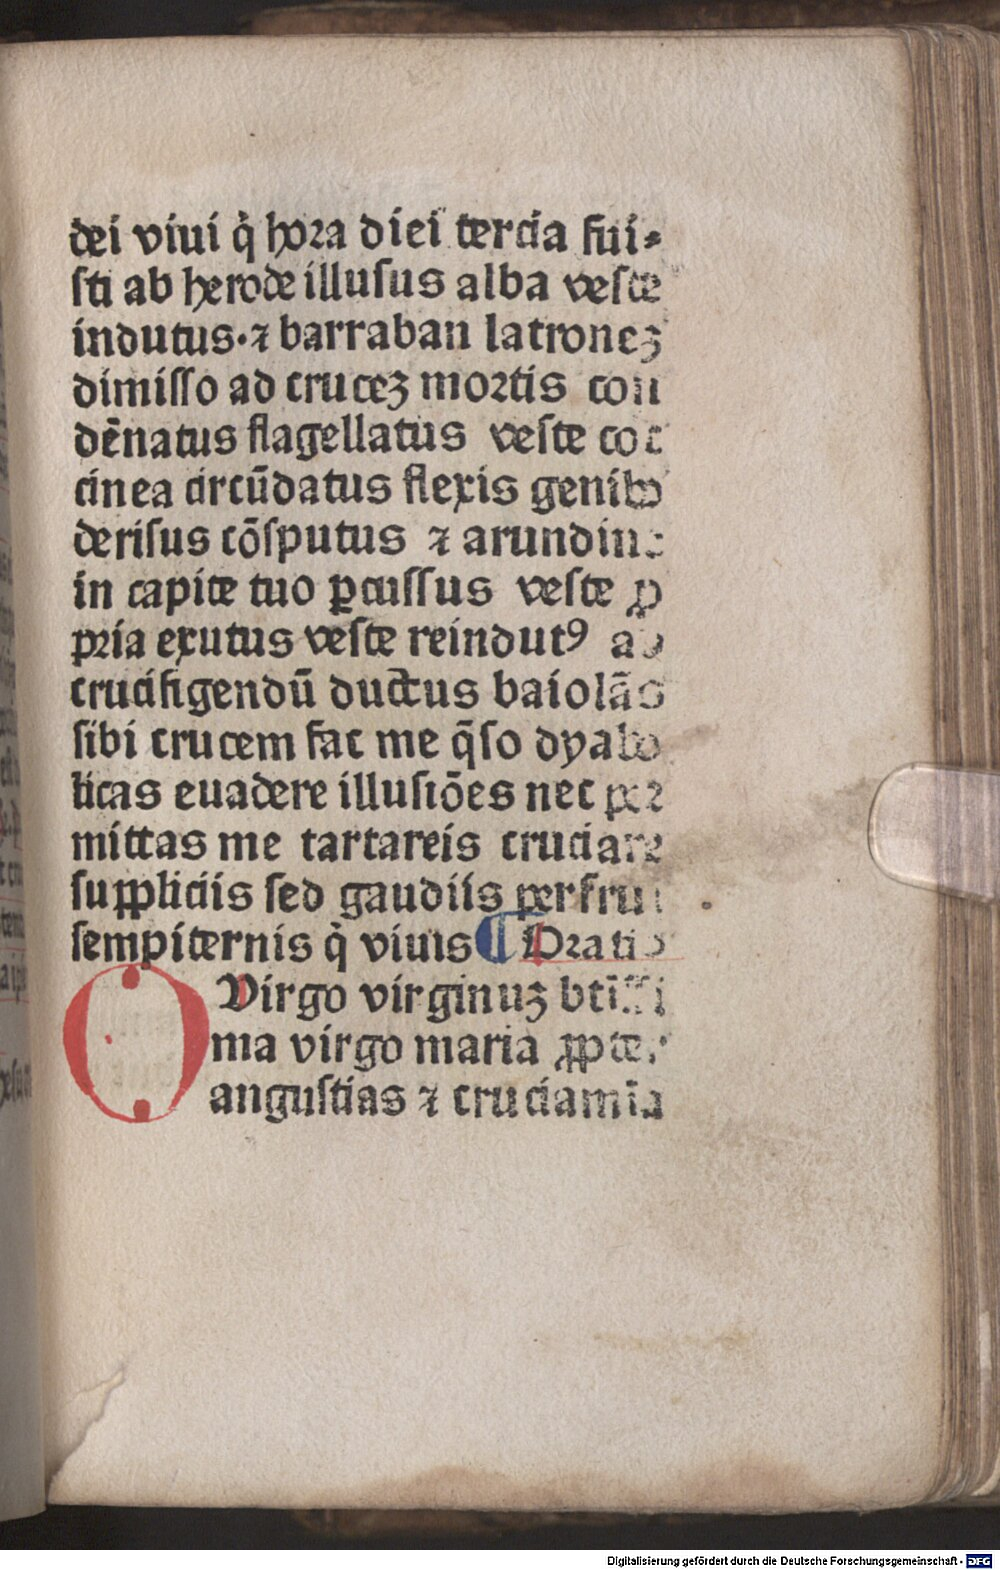 dei viui q̇ hora diei tercia fui⸗
sti ab herode illusus alba veste
indutus·⁊ barraban latronez
dimisso ad crucez mortis con
dēnatus flagellatus veste coc
cinea circūdatus flexis genibꝰ
derisus cōsputus ⁊ arundine
in capite tuo ꝑcussus veste ꝓ
pria exutus veste reindutꝰ ad
crucifigendū ductus baiolās
sibi crucem fac me q̄so dyabo
licas euadere illusiōes nec per
mittas me tartareis cruciare
suppliciis sed gaudiis perfrui
sempiternis q̇ viuis ¶ Oratio
O Virgo virginuz btīssi
ma virgo maria ꝓpter
angustias ⁊ cruciamīa
Digitalisierung gefördert durch die Deutsche Forschungsgemeinschaft - DFG